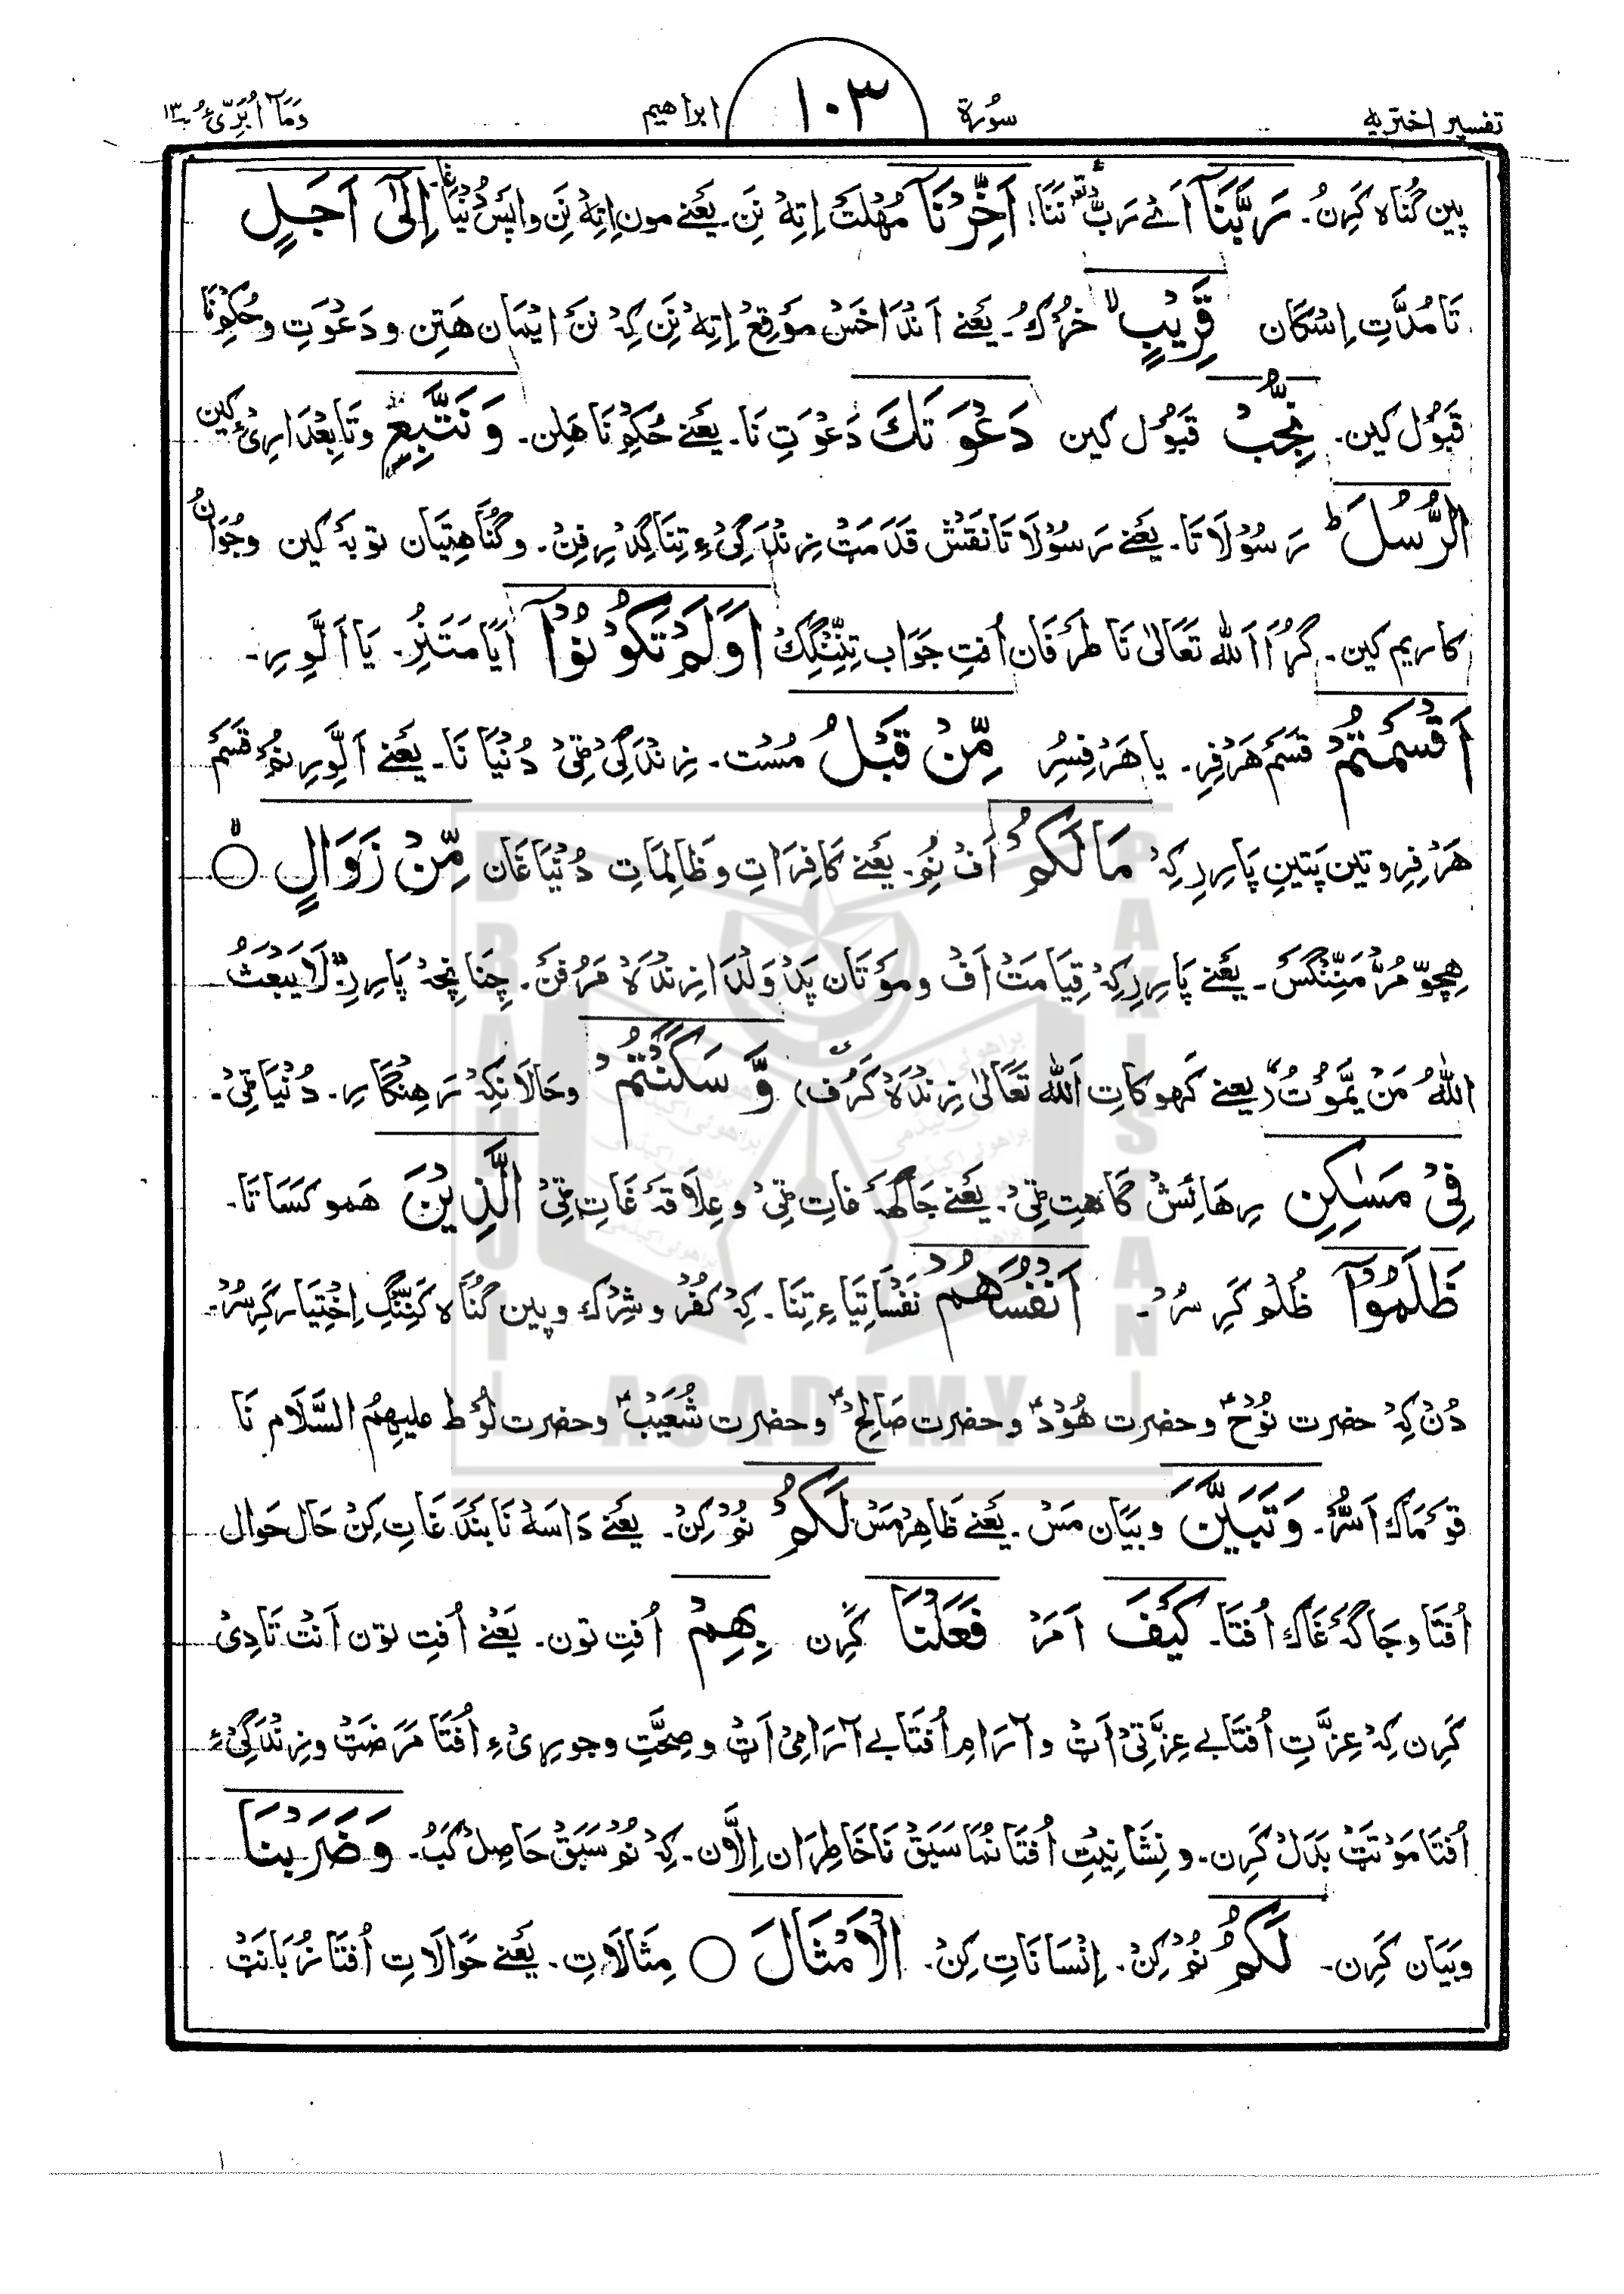 تفسیر اختریه سُورة ۱۰۳ ابراهیم وَمَآ اُبَرِّئُ ۱۳
پین گُناه کَرِنُ۔ رَبَّنَآ اَے رَبّ نَنَا! اَخِّرْنَآ مُهْلَتْ اِتِهْ نَنِ۔ یَعْنے مون اِتِهْ نَنِ واپَسْ دُنْیَا غَا اِلٰٓی اَجَلٍ
تَا مُدَّتِ اِسْکَان قَرِیْبٍ خُرُکُ۔ یَعْنے اَنْدَاخَسْ مَوْقِعْ اِتِهْ نَنِ کِهْ نَنْ اِیْمَان هَتِن و دَعْوَتِ و حُکِمْ نَا
قَبُوْل کین۔ نُّجِبْ قَبُوْل کین دَعْوَتَکَ دَعْوَتِ نَا۔ یَعْنے حُکِمْ نَا هَلِن۔ وَنَتَّبِعِ وتَابِعْدَارِیْ کین
الرُّسُلَ ط رَسُوْلَا تَا۔ یَعْنے رَسُوْلَا تَا نَقْشِ قَدَمَتْ زِنْدَگیْ ءِ تِنَا گِدْرِفِنْ۔ و گُنَاهتِیَان توبَهْ کین وجُوَان
کاریم کین۔ گُرَا اَللّٰه تَعَالٰی نَا طَرَفَان اُفتِ جَوَاب تِنِّنْگِکْ اَوَلَمْ تَکُوْنُوْآ اَیَا مَتَنْرِ۔ یَا اَلَّوِرِ۔
اَقْسَمْتُمْ قَسَمْ هَرْفِرِ۔ یا هَرْفِسُرِ مِّنْ قَبْلُ مُسْت۔ زِنْدَگِیْ ٹِیْ دُنْیَا نَا۔ یَعْنے اَلَّوِرِ نُمْ قَسَمْ
هَرْفِرِ و تین پَتین پَارِرِ کِهْ مَالَکُمْ اَفْ نُمِ۔ یَعْنے کَافِرَاتِ وظَالِمَاتِ دُنْیَا غَان مِّنْ زَوَالٍ ○
هِچوّ مُرّ مَنِّنْگسَ۔ یَعْنے پَارِرِ کِهْ قِیَامَتْ اَفْ و مَوْتَان پَدْ وَلْدَا زِنْدَهْ مَرُفَنْ۔ چِنَانْچِهْ پَارِرِ۔ لَا یَبْعَثُ
اللّٰهُ مَنْ یَّمُوْتُ (یعنے کَهوکَاتِ اَللّٰه تَعَالٰی زِنْدَهْ کَرُف) وَّسَکَنْتُمْ وحَالَانکِهْ رَهِنْگَارِ۔ دُنْیَا ٹِیْ۔
فِیْ مَسٰکِنِ رِهَائِشْ گَاهتِ ٹِیْ۔ یَعْنے جَاگَهَ غاتِ ٹِیْ و عِلَاقَهَ غَاتِ ٹِیْ الَّذِیْنَ هَمو کَسَا تَا۔
ظَلَمُوْآ ظُلْم کَرِسُرْ۔ اَنْفُسَهُمْ نَفْسَا تِیَاءِ تِنَا۔ کِهْ کُفْرْ و شِرْک و پین گُنَاه کَنِّنْگِ اِخْتِیَار کَرِسُرْ۔
دُنْ کِهْ حضرت نُوْحْ ؑ وحضرت هُوْدْ ؑ وحضرت صَالِحْ ؑ وحضرت شُعَیْبْ ؑ وحضرت لُوْط علیهِمُ السَّلَام نَا
قَوْمَاک اَسُّرْ۔ وَتَبَیَّنَ و بَیَان مَسْ۔ یَعْنے ظَاهِرْ مَسْ لَکُمْ نُمْ کِنْ۔ یَعْنے دَاسَهْ نَا بَنْدَ غَاتِ کِنْ حَال حَوال
اُفتَا و جَاگَهْ غَاک اُفتَا۔ کَیْفَ اَمَرْ فَعَلْنَا کَرِن بِهِمْ اُفتِ تون۔ یَعْنے اُفتِ تون اَنْتْ تَادِیْ
کَرِن کِهْ عِزَّتِ اُفتَا بے عِزَّتِیْ اَٹ وآرَامِ اُفتَا بے آرَامِیْ اَٹ و صِحَّتِ وجورِیْ ءِ اُفتَا مَرَضَتْ وزِنْدَگِیْ ءِ
اُفتَا مَوْتَتْ بَدَلْ کَرِن۔ و نِشَانِیْتِ اُفتَا نُمَا سَبَقْ نَا خَاطِرَان اِلَّان۔ کِهْ نُمْ سَبَقْ حَاصِلْ کَبُ۔ وَضَرَبْنَا
و بَیَان کَرِن۔ لَکُمُ نُمْ کِنْ۔ اِنْسَانَاتِ کِنْ۔ الْاَمْثَالَ ○ مِثَالَاتِ۔ یَعْنے حَالَاتِ اُفتَا زُبَانَتْ
BRAHUI
ACADEMY
PAKISTAN